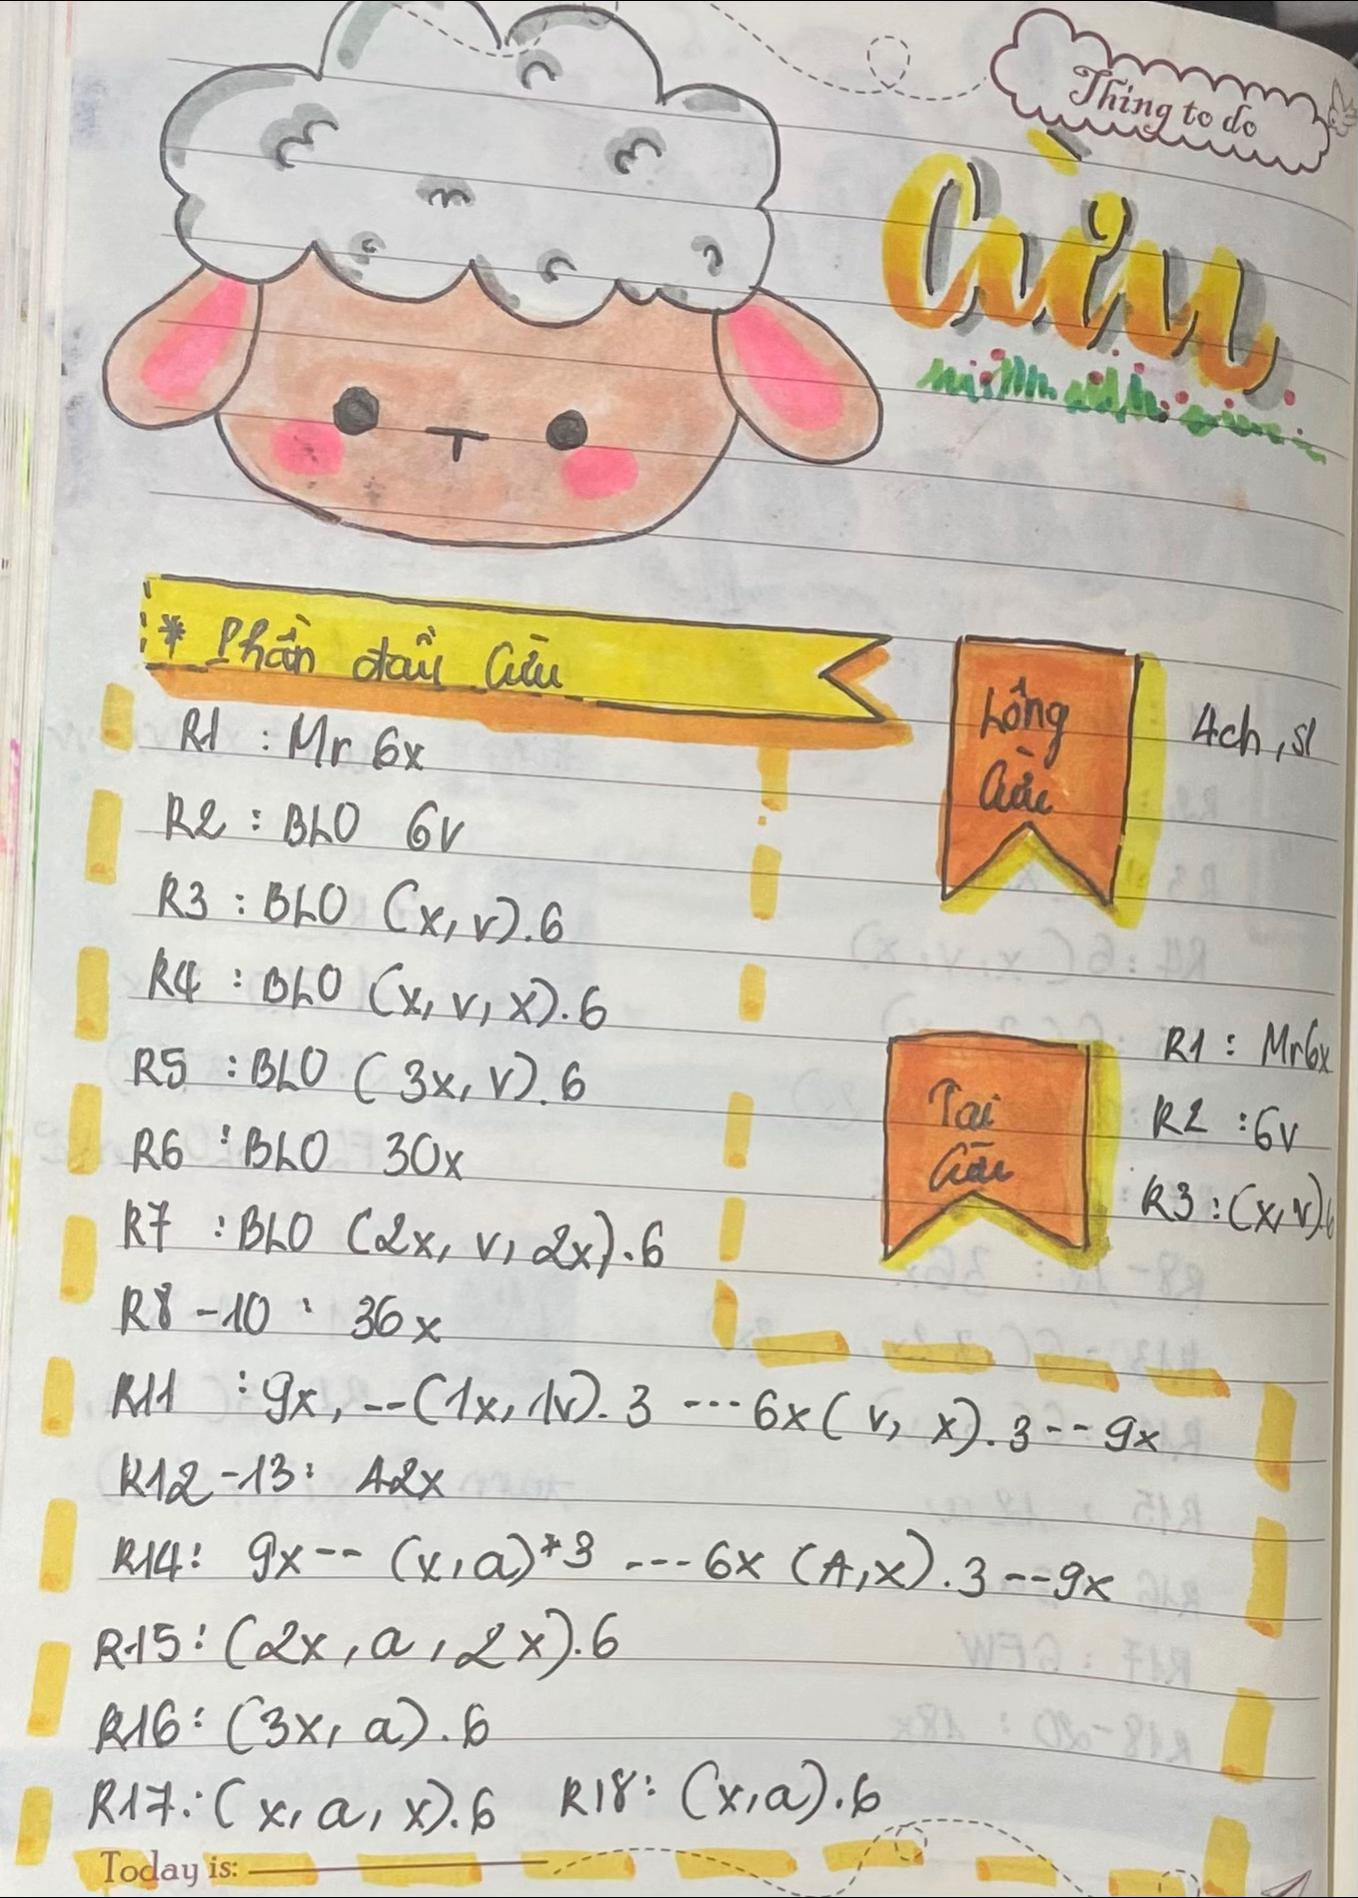 Thing to do
Cừu
* Phần đầu Cừu
R1 : Mr 6x
R2 : BLO 6v
R3 : BLO (x, v).6
R4 : BLO (x, v, x).6
R5 : BLO (3x, v).6
R6 : BLO 30x
R7 : BLO (2x, v, 2x).6
R8 - 10 : 36x
R11 : 9x, --(1x, 1v).3 --- 6x(v, x).3 -- 9x
R12 - 13 : 42x
R14 : 9x -- (x, a)*3 --- 6x (A, x).3 -- 9x
R15 : (2x, a, 2x).6
R16 : (3x, a).6
R17 : (x, a, x).6 R18 : (x, a).6
Lông
Cừu
4ch, sl
Tai
Cừu
R1 : Mr6x
R2 : 6v
R3 : (x, v).6
Today is: